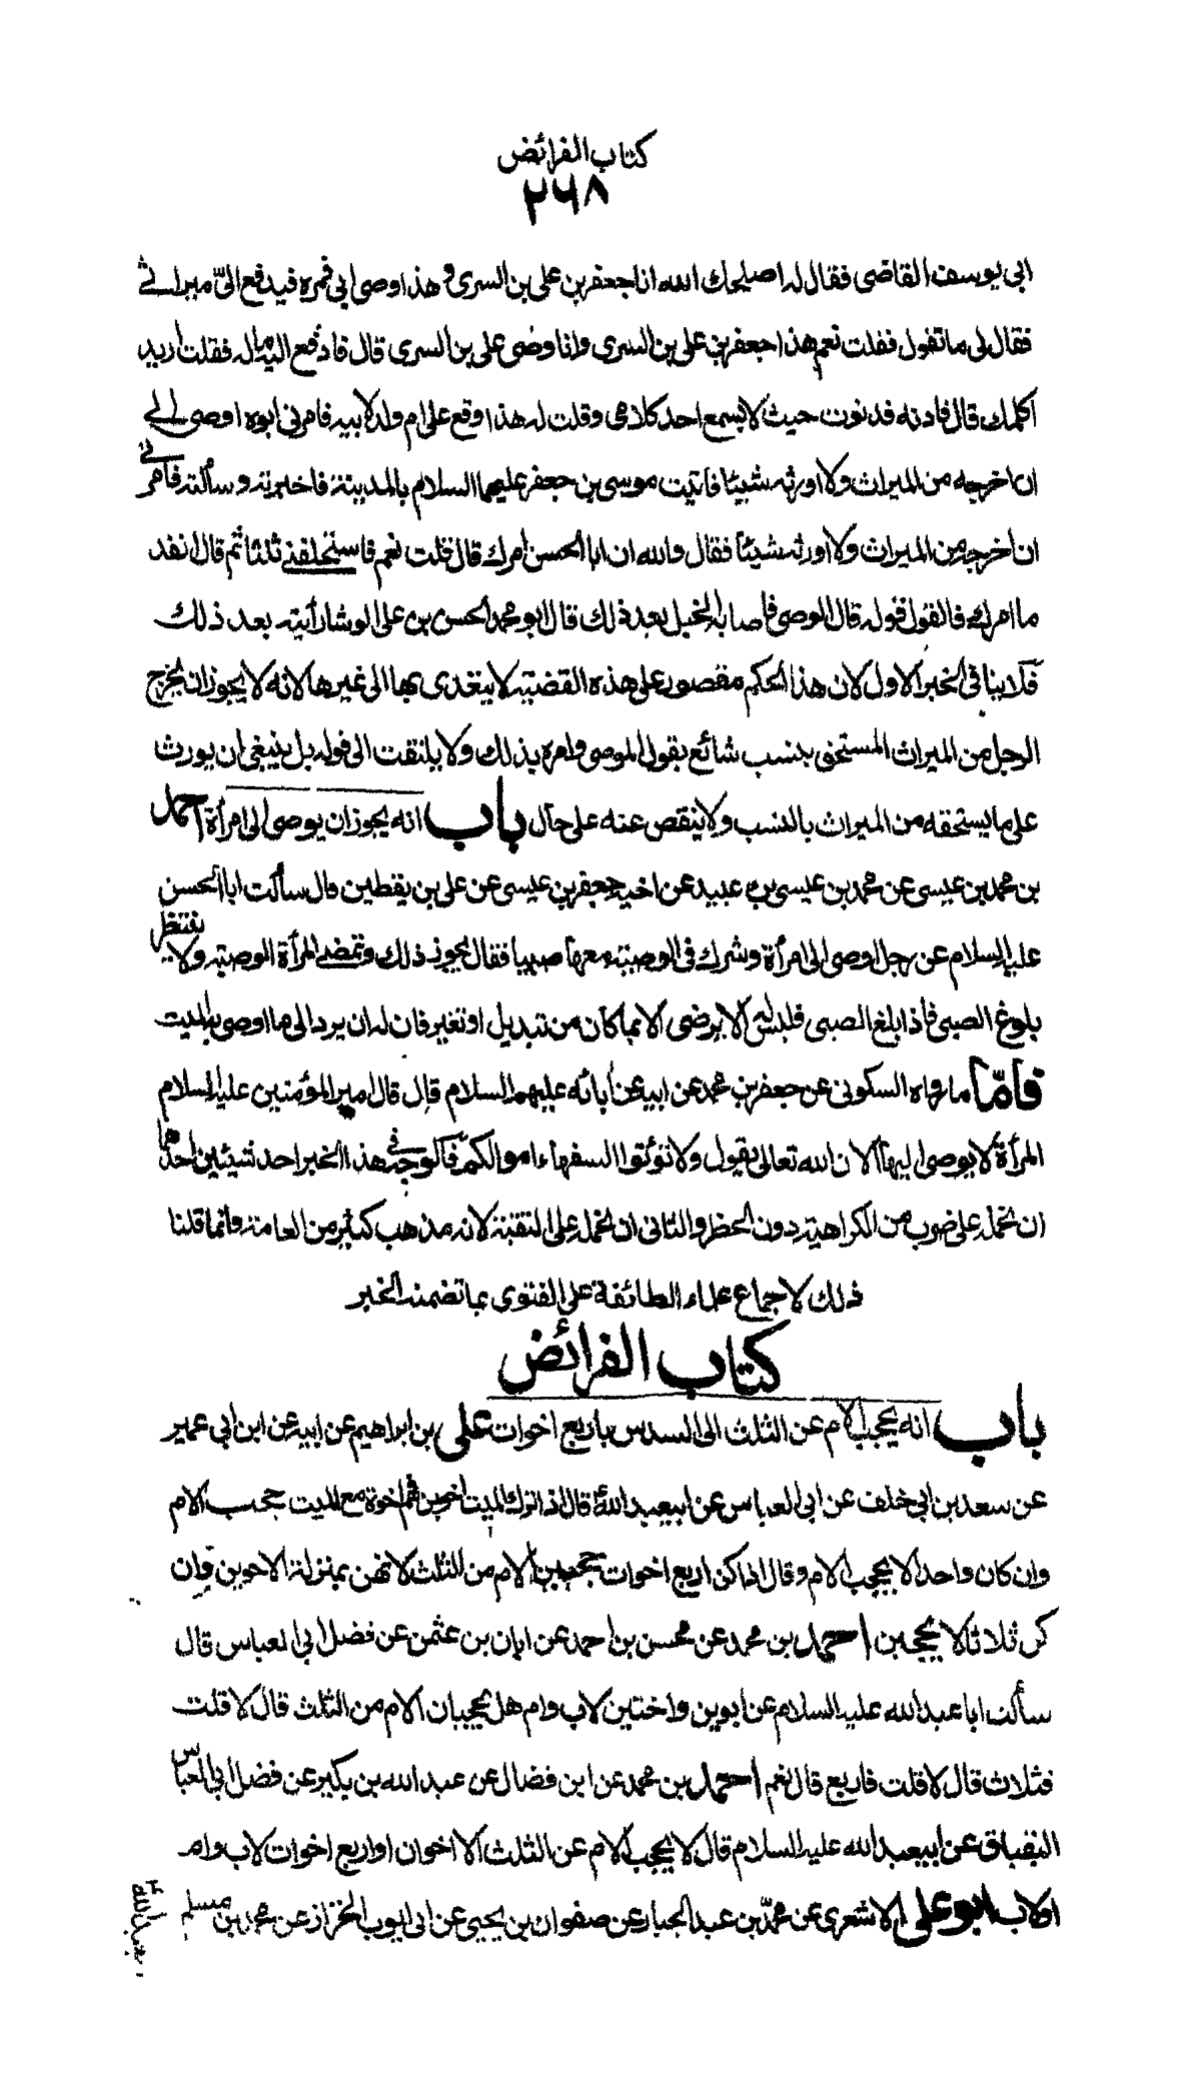 كتاب الفرائض
٢٦٨
ابى يوسف القاضى فقال له اصلحك الله انا جعفر بن على بن السرى وهذا وصى ابى فمره فيدفع الىّ ميراثى
فقال لى ما تقول فقلت نعم هذا جعفر بن على بن السرى وانا وصى على بن السرى قال فادفع اليه ماله فقلت اريد
اكلمك قال فادنه فدنوت حيث لا يسمع احد كلامى وقلت له هذا وقع على ام ولد لابيه فامرنى ابوه اوصى الى
ان اخرجه من الميراث ولا اورثه شيئا فاتيت موسى بن جعفر عليهما السلام بالمدينة فاخبرته وسألته فامرنى
ان اخرجه من الميراث ولا اورثه شيئا فقال والله ان ابا الحسن امرك قال قلت نعم فاستحلفنى ثلثا ثم قال انفذ
ما امرك فالقول قوله قال الوصى فاصابه الخبل بعد ذلك قال ابو محمد الحسن بن على الوشا رأيته بعد ذلك
فلا ينافى الخبر الاول لان هذا الحكم مقصور على هذه القضية لا يتعدى بها الى غيرها لانه لا يجوز ان يخرج
الرجل من الميراث المستحق بنسب شائع بقول الموصى وامره بذلك ولا يلتفت الى قوله بل ينبغى ان يورث
على ما يستحقه من الميراث بالنسب ولا ينقص عنه على حال باب انه يجوز ان يوصى الى امرأة احمد
بن محمد بن عيسى عن محمد بن عيسى بن عبيد عن اخيه جعفر بن عيسى عن على بن يقطين قال سألت ابا الحسن
عليه السلام عن رجل اوصى الى امرأة وشرك فى الوصية معها صبيا فقال يجوز ذلك وتمضى المرأة الوصية ولا ينتظر
بلوغ الصبى فاذا بلغ الصبى فليس له الا يرضى الا بما كان من تبديل او تغيير فان له ان يرد الى ما اوصى به الميت
فامّا ما رواه السكونى عن جعفر بن محمد عن ابيه عن آبائه عليهم السلام قال قال امير المؤمنين عليه السلام
المرأة لا يوصى اليها لان الله تعالى يقول ولا تؤتوا السفهاء اموالكم فالوجه فى هذا الخبر احد شيئين احدهما
ان نحمله على ضرب من الكراهية دون الحظر والثانى ان نحمله على التقية لانه مذهب كثير من العامة وانما قلنا
ذلك لاجماع علماء الطائفة على الفتوى بما تضمنه الخبر
كتاب الفرائض
باب انه يحجب الام عن الثلث الى السدس باربع اخوات على بن ابراهيم عن ابيه عن ابن ابى عمير
عن سعد بن ابى خلف عن ابى العباس عن ابيعبد الله قال اذا ترك الميت اخوين فهم اخوة مع الميت حجب الام
وان كان واحدا لا يحجب الام وقال اذا كن اربع اخوات حجبن الام من الثلث لانهن بمنزلة الاخوين وان
كن ثلاثا لا يحجبن احمد بن محمد عن محسن بن احمد عن ابان بن عثمن عن فضل ابى العباس قال
سألت ابا عبد الله عليه السلام عن ابوين واختين لاب وام هل يحجبان الام من الثلث قال لا قلت
فثلاث قال لا قلت فاربع قال نعم احمد بن محمد عن ابن فضال عن عبد الله بن بكير عن فضل ابى العباس
البقباق عن ابيعبد الله عليه السلام قال لا يحجب الام عن الثلث الا اخوان او اربع اخوات لاب وام
او لاب ابو على الاشعرى عن محمّد بن عبد الجبار عن صفوان بن يحيى عن ابى ايوب الخزاز عن محمد بن مسلم